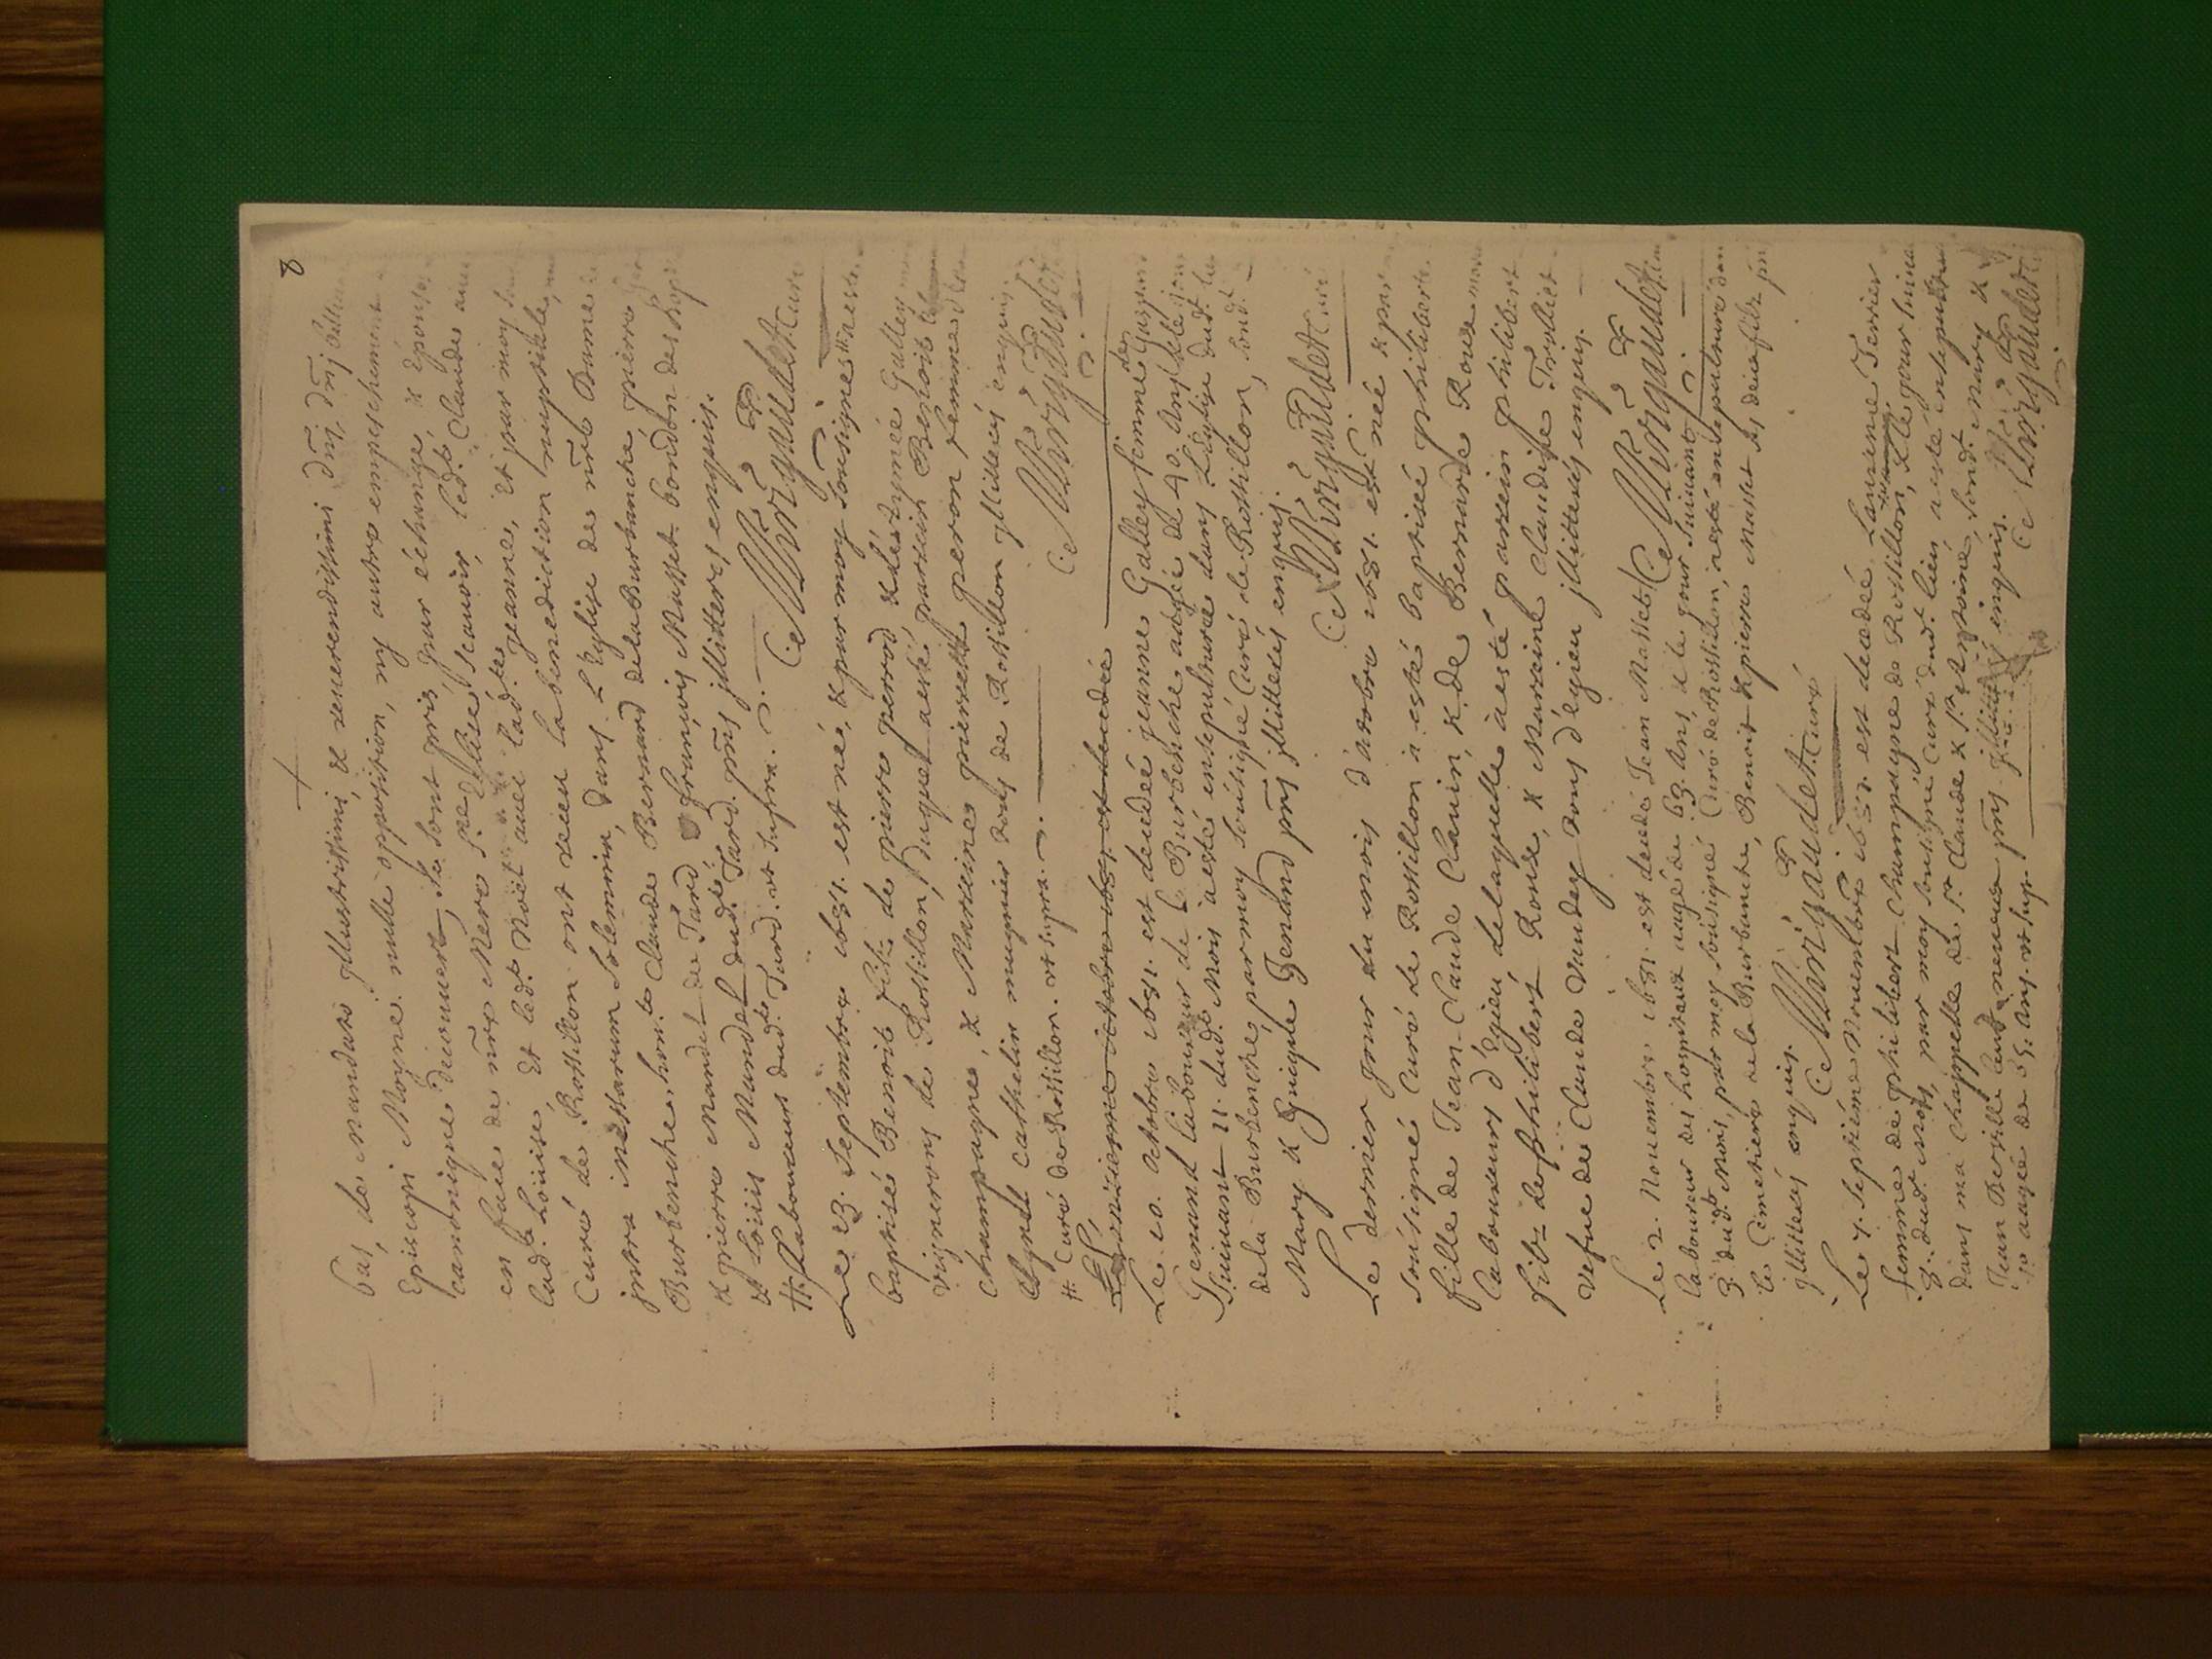 8
bus, de mandato Illustrissimi, & reuerendissimi dñi, dñj
Episcopi Mogne nulle opposition, ny autre empeschement
Canonique decouuert, se sont pris pour échange, & Epouse
en face de nr̃e Mere Ste Eglise scauoir, led.t Claude auec
lad.te Louise, Et led.t Noël auec lad.te Jeanne, Et par moy
Curé de Rossillon ont receu la benediction nuptiale,
jntra missarum solemnia, dans L'Eglise de nr̃e Dame
Burbenche, hon.te Claude Bernard de la Burbanche, pierre
& pierre Mandet de Tard françois Musset bondon des hopi
& Loüis Mandet dud.t Tard. pñs jllitteres enquis.
# Laboureurs dud.t Tard. vt supra.
C. Mirigaudet Curé
Le 23. Septembre 1651. est né, & par moy sousigné #
baptisé Benoit filz de pierre perrod, & d'estiennée Galley
vignerons de Rossillon, Duquel a esté parrein Benoit
champagne, & Marreine pierrette peron femme d
Agnett cathelin mugnier tous de Rossillon jllitterés enquis.
# Curé de Rossillon. vt supra.
C. Mirigaudet
Le 10. octobre 1651. est decedeé jeanne Galley femme de
Genand laboureur de la Burbenche aageé de 40. Ans, & le jour
Suiuant 11. dud.t Mois a esté ensepulturé dans L'eglise dud.t lieu
de la Burbenche par moy sousigné Curé de Rossillon, sond.t
Mary & Guigue Genand pñs jllitterés enquis.
C. Mirigaudet Curé
Le dernier jour du mois d'octobre 1651. est neé & par
sousigné Curé de Rossillon a esté baptiseé philiberte
fille de Jean-Claude Clauin, & de Bernarde Rousse
laboureurs d'égieu delaquelle a esté parrein philibert
filz de philibert Rouse, & Marreine Claudine Triollet
vefue de Claude Mandey tous d'égieu jllitterés enquis.
C. Mirigaudet
Le 2. Nouembre 1651. est decedé Jean Masset
laboureur des hospitaux aagé de 63. Ans, & le jour suiuant
3. dud.t Mois, par moy sousigné Curé de Rossillon, a esté ensepulturé dan
le Cimetiere de la Burbanche, Benoit & pierre Masset ses deux filz pñ
jllitterés enquis.
C. Mirigaudet Curé
Le 7. septiéme Nouembre 1651. est decedeé Laurence Terrier
femme de philibert champagne de Rossillon, & le jour suiuant
8. dud.t Mois, par moy sousigné Curé dud.t lieu, a esté ensepulturé
dans ma chappelle de St. Claude & St. Antoine, sond.t Mary &
Jean neueu pñs jllitterés enquis.
aageé de 55. Ans. vt sup.
C. Mirigaudet